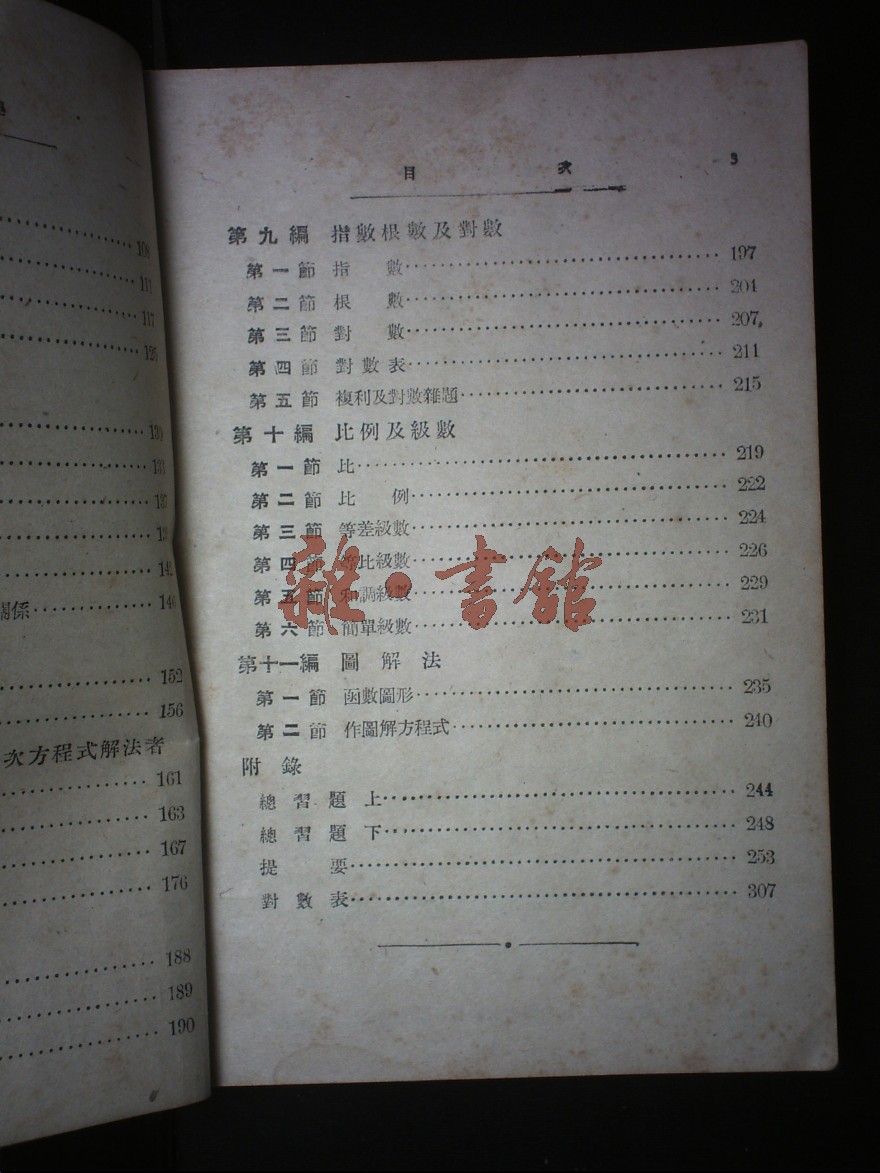 152
156
次方程式解法者
161
163
167
176
188
189
190
目 次 3
第九編 指數根數及對數
第一節 指 數 197
第二節 根 數 204
第三節 對 數 207
第四節 對數表 211
第五節 複利及對數雜題 215
第十編 比例及級數
第一節 比 219
第二節 比 例 222
第三節 等差級數 224
第四節 等比級數 226
第五節 和調級數 229
第六節 簡單級數 231
第十一編 圖解法
第一節 函數圖形 235
第二節 作圖解方程式 240
附錄
總習題上 244
總習題下 248
提要 253
對數表 307
雜·書館